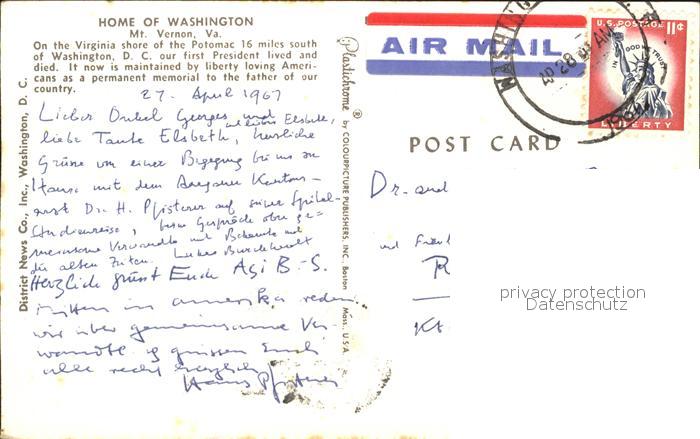 HOME OF WASHINGTON
Mt. Vernon, Va.
On the Virginia shore of the Potomac 16 miles south
of Washington, D. C. our first President lived and
died. It now is maintained by liberty loving Ameri-
cans as a permanent memorial to the father of our
country.
27. April 1967
Lieber Onkel Georges, und
liebe Tante Elsbeth, herzliche
Grüsse von einer Begegnung bei uns zu
Hause mit dem Aargauer Kantons-
arzt Dr. H. Pfisterer auf seiner Spital-
Studienreise, beim Gespräche über ge-
meinsame Verwandte und Bekannte und
die alten Zeiten. Lukas Burckhardt
Herzlich grüsst Euch Agi B.-S.
Mitten in Amerika reden
wir über gemeinsame Ver-
wandte & grüssen Euch
alle recht herzlich
Hans Pfisterer
District News Co., Inc., Washington, D. C.
Plastichrome ® by COLOURPICTURE PUBLISHERS, INC. Boston Mass. U.S.A.
AIR MAIL
U.S. POSTAGE 11¢
IN GOD WE TRUST
LIBERTY
WASHING
AP 28 AM
POST CARD
Dr. and
und
R
Kt.
privacy protection
Datenschutz